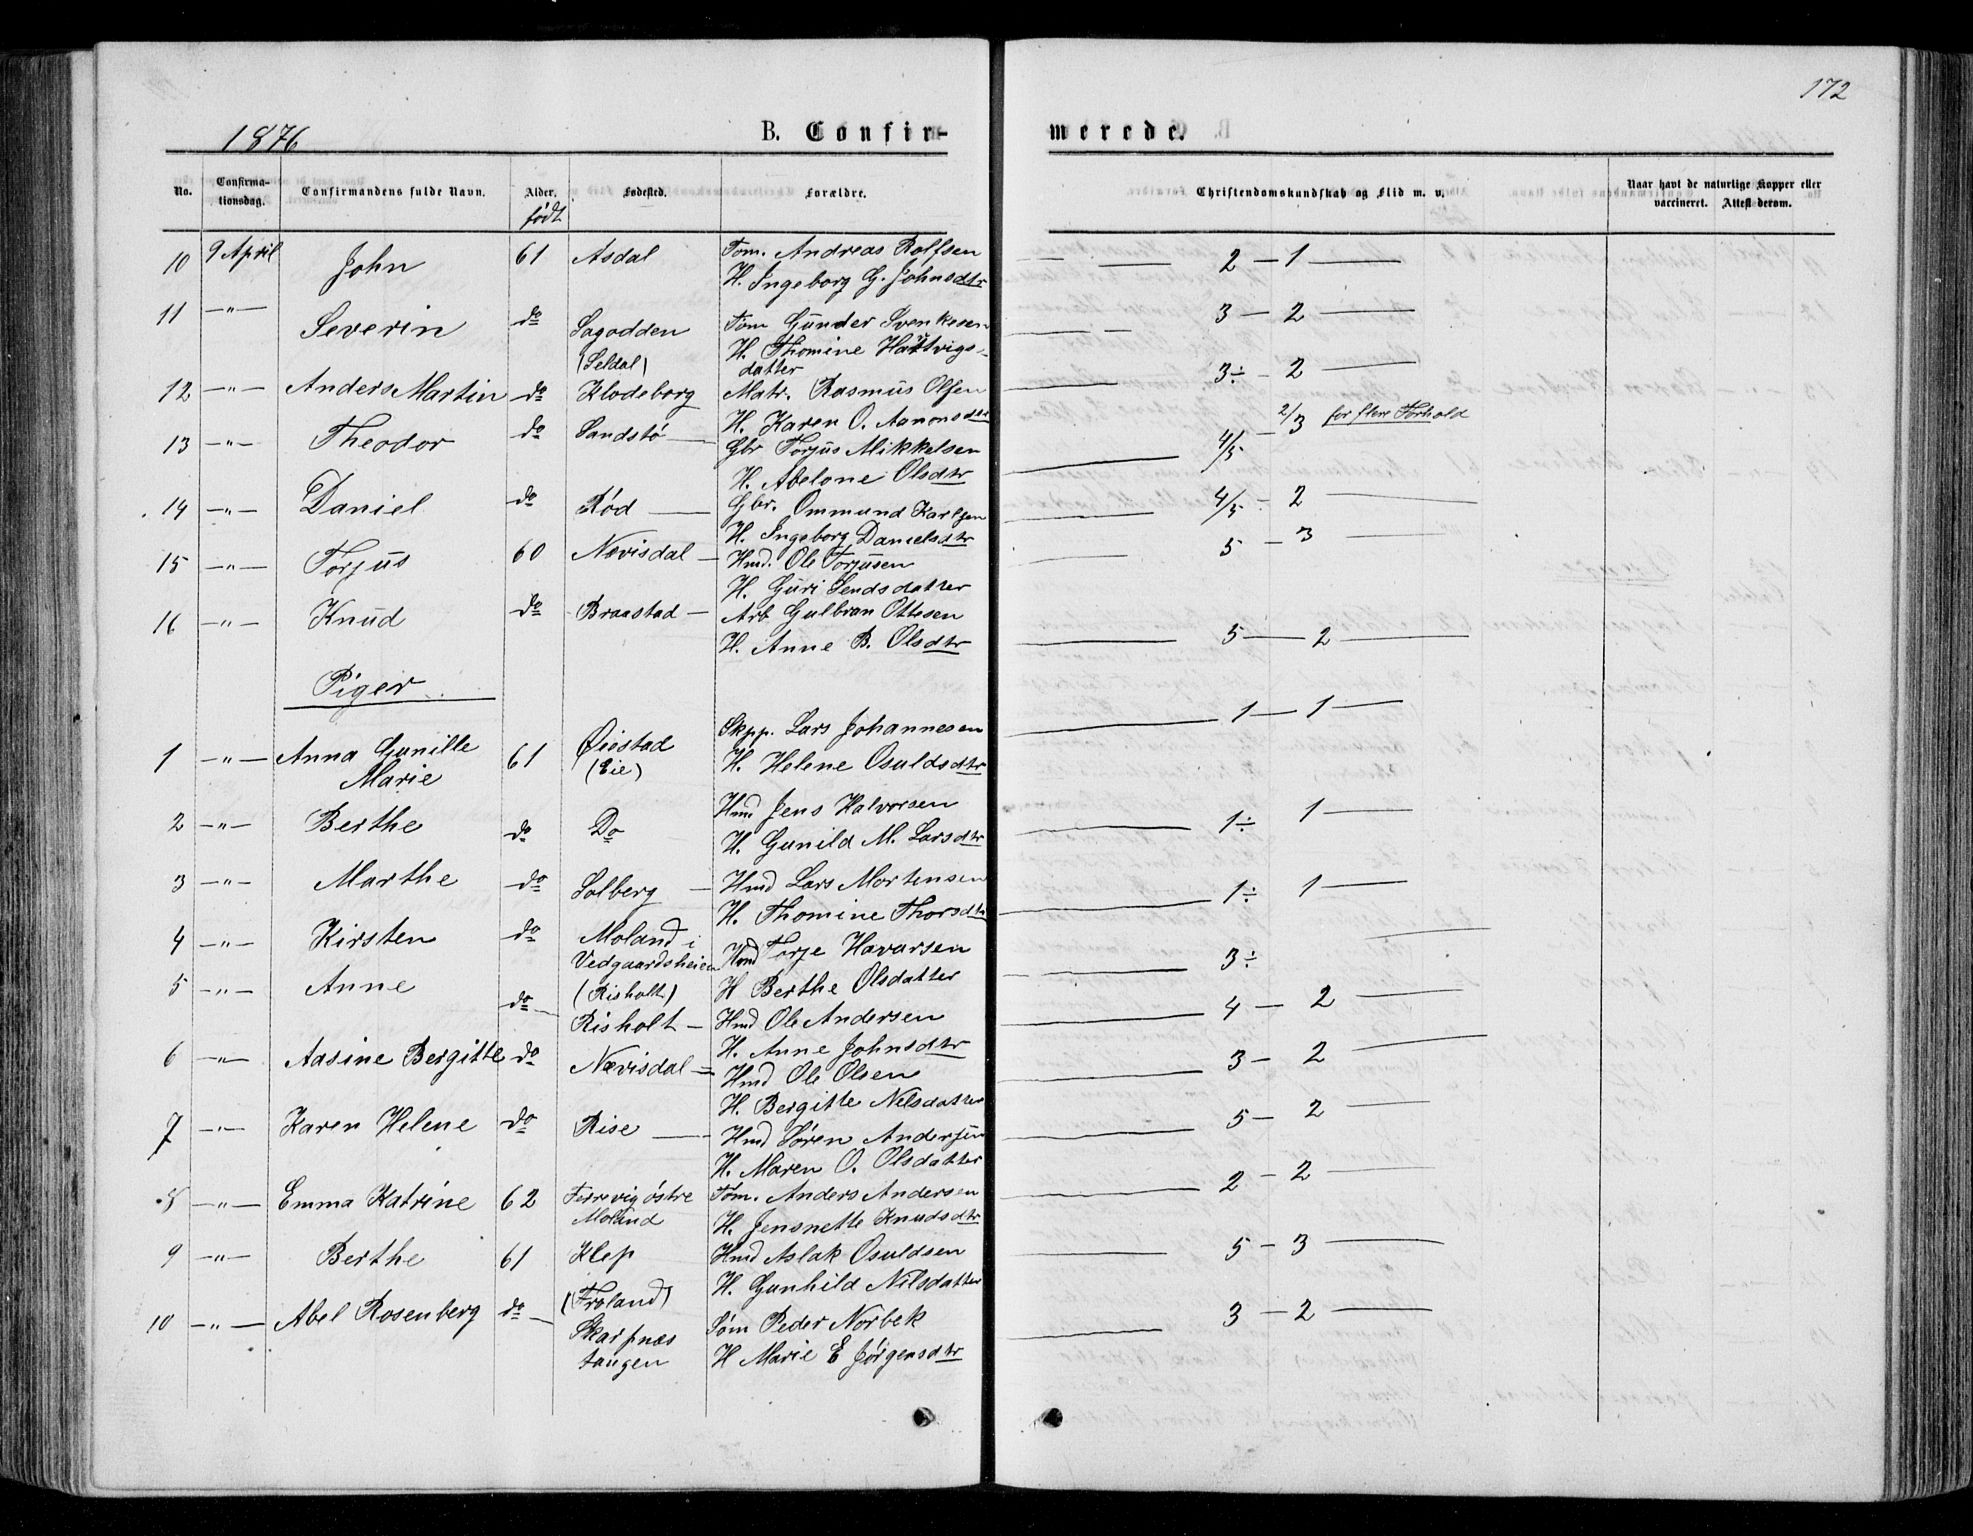 172
1876 B. Confirmerede.
No. Confirmationsdag. Confirmandens fulde Navn. Alder, født Fødested. Forældre. Christendomskundskab og Flid m. v. Naar havt de naturlige Kopper eller vaccineret. Attest derom.
10 9 April John 61 Asdal Tøm. Andreas Rolfsen 2 — 1
H. Ingeborg G. Johnsdtr
11 —"— Severin do Sagodden Tøm Gunder Svenksen 3 — 2
(Seldal) H. Thomine Hartvigs-
datter
12 —"— Anders Martin do Klodeborg Matr. Rasmus Olsen 3÷ - 2
H. Karen O. Aanonsdtr
13 —"— Theodor do Sandstø Gbr Torjus Mikkelsen 4/5 - 2/3 for flere Forhold
H. Abelone Olsdtr
14 —"— Daniel do Rød Gbr. Ommund Karlsen 4/5 - 2
H. Ingeborg Danielsdtr
15 —"— Torjus 60 Nævisdal Hmd. Ole Torjusen 5 - 3
H. Guri Sendsdatter
16 —"— Knud do Braastad Arb Gulbran Ottesen 5 — 2
H. Anne B. Olsdtr
Piger
1 —"— Anna Gunille 61 Øiestad Skpp. Lars Johannesen 1 — 1
Marie (Eie) H. Helene Osuldsdtr
2 —"— Berthe do Do Hmd Jens Halvorsen 1÷ 1
H. Gunild M. Larsdtr
3 —"— Marthe do Solberg Hmd Lars Mortensen 1÷ 1
H. Thomine Thorsdtr
4 —"— Kirsten do Moland i Hmd Torje Havarsen 3÷
Vedgaardsheien H Berthe Olsdatter
(Risholt)
5 —"— Anne do Risholt Hmd Ole Andersen 4 — 2
H. Anne Johnsdtr
6 —"— Aasine Bergitte do Nævisdal Hmd Ole Olsen 3 - 2
H. Bergitte Nilsdatter
7 —"— Karen Helene do Rise Hmd Søren Andersen 5 - 2
H. Maren O. Olsdatter
8 —"— Emma Katrine 62 Færevig østre Tøm. Anders Andersen 2 - 2
Moland H. Jensnette Knudsdtr
9 —"— Berthe 61 Klep Hmd Aslak Osuldsen 5 - 3
(Froland) H. Gunhild Nilsdatter
10 —"— Abel Rosenberg do Skarpnæs Søm Peder Norbek 3 - 2
tangen H Marie E Jørgensdtr